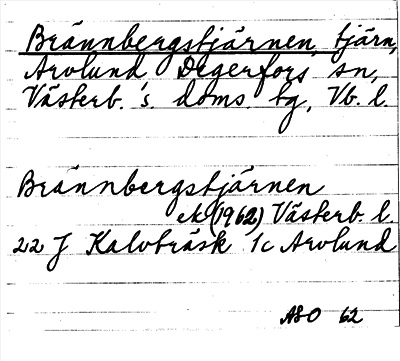 Brännbergstjärnen, tjärn,
Arvlund Degerfors sn,
Västerb. s. doms. tg, Vb. l.
Brännbergstjärnen
ek (1962) Västerb. l.
22 J Kalvträsk 1c Arvlund
ASO 62